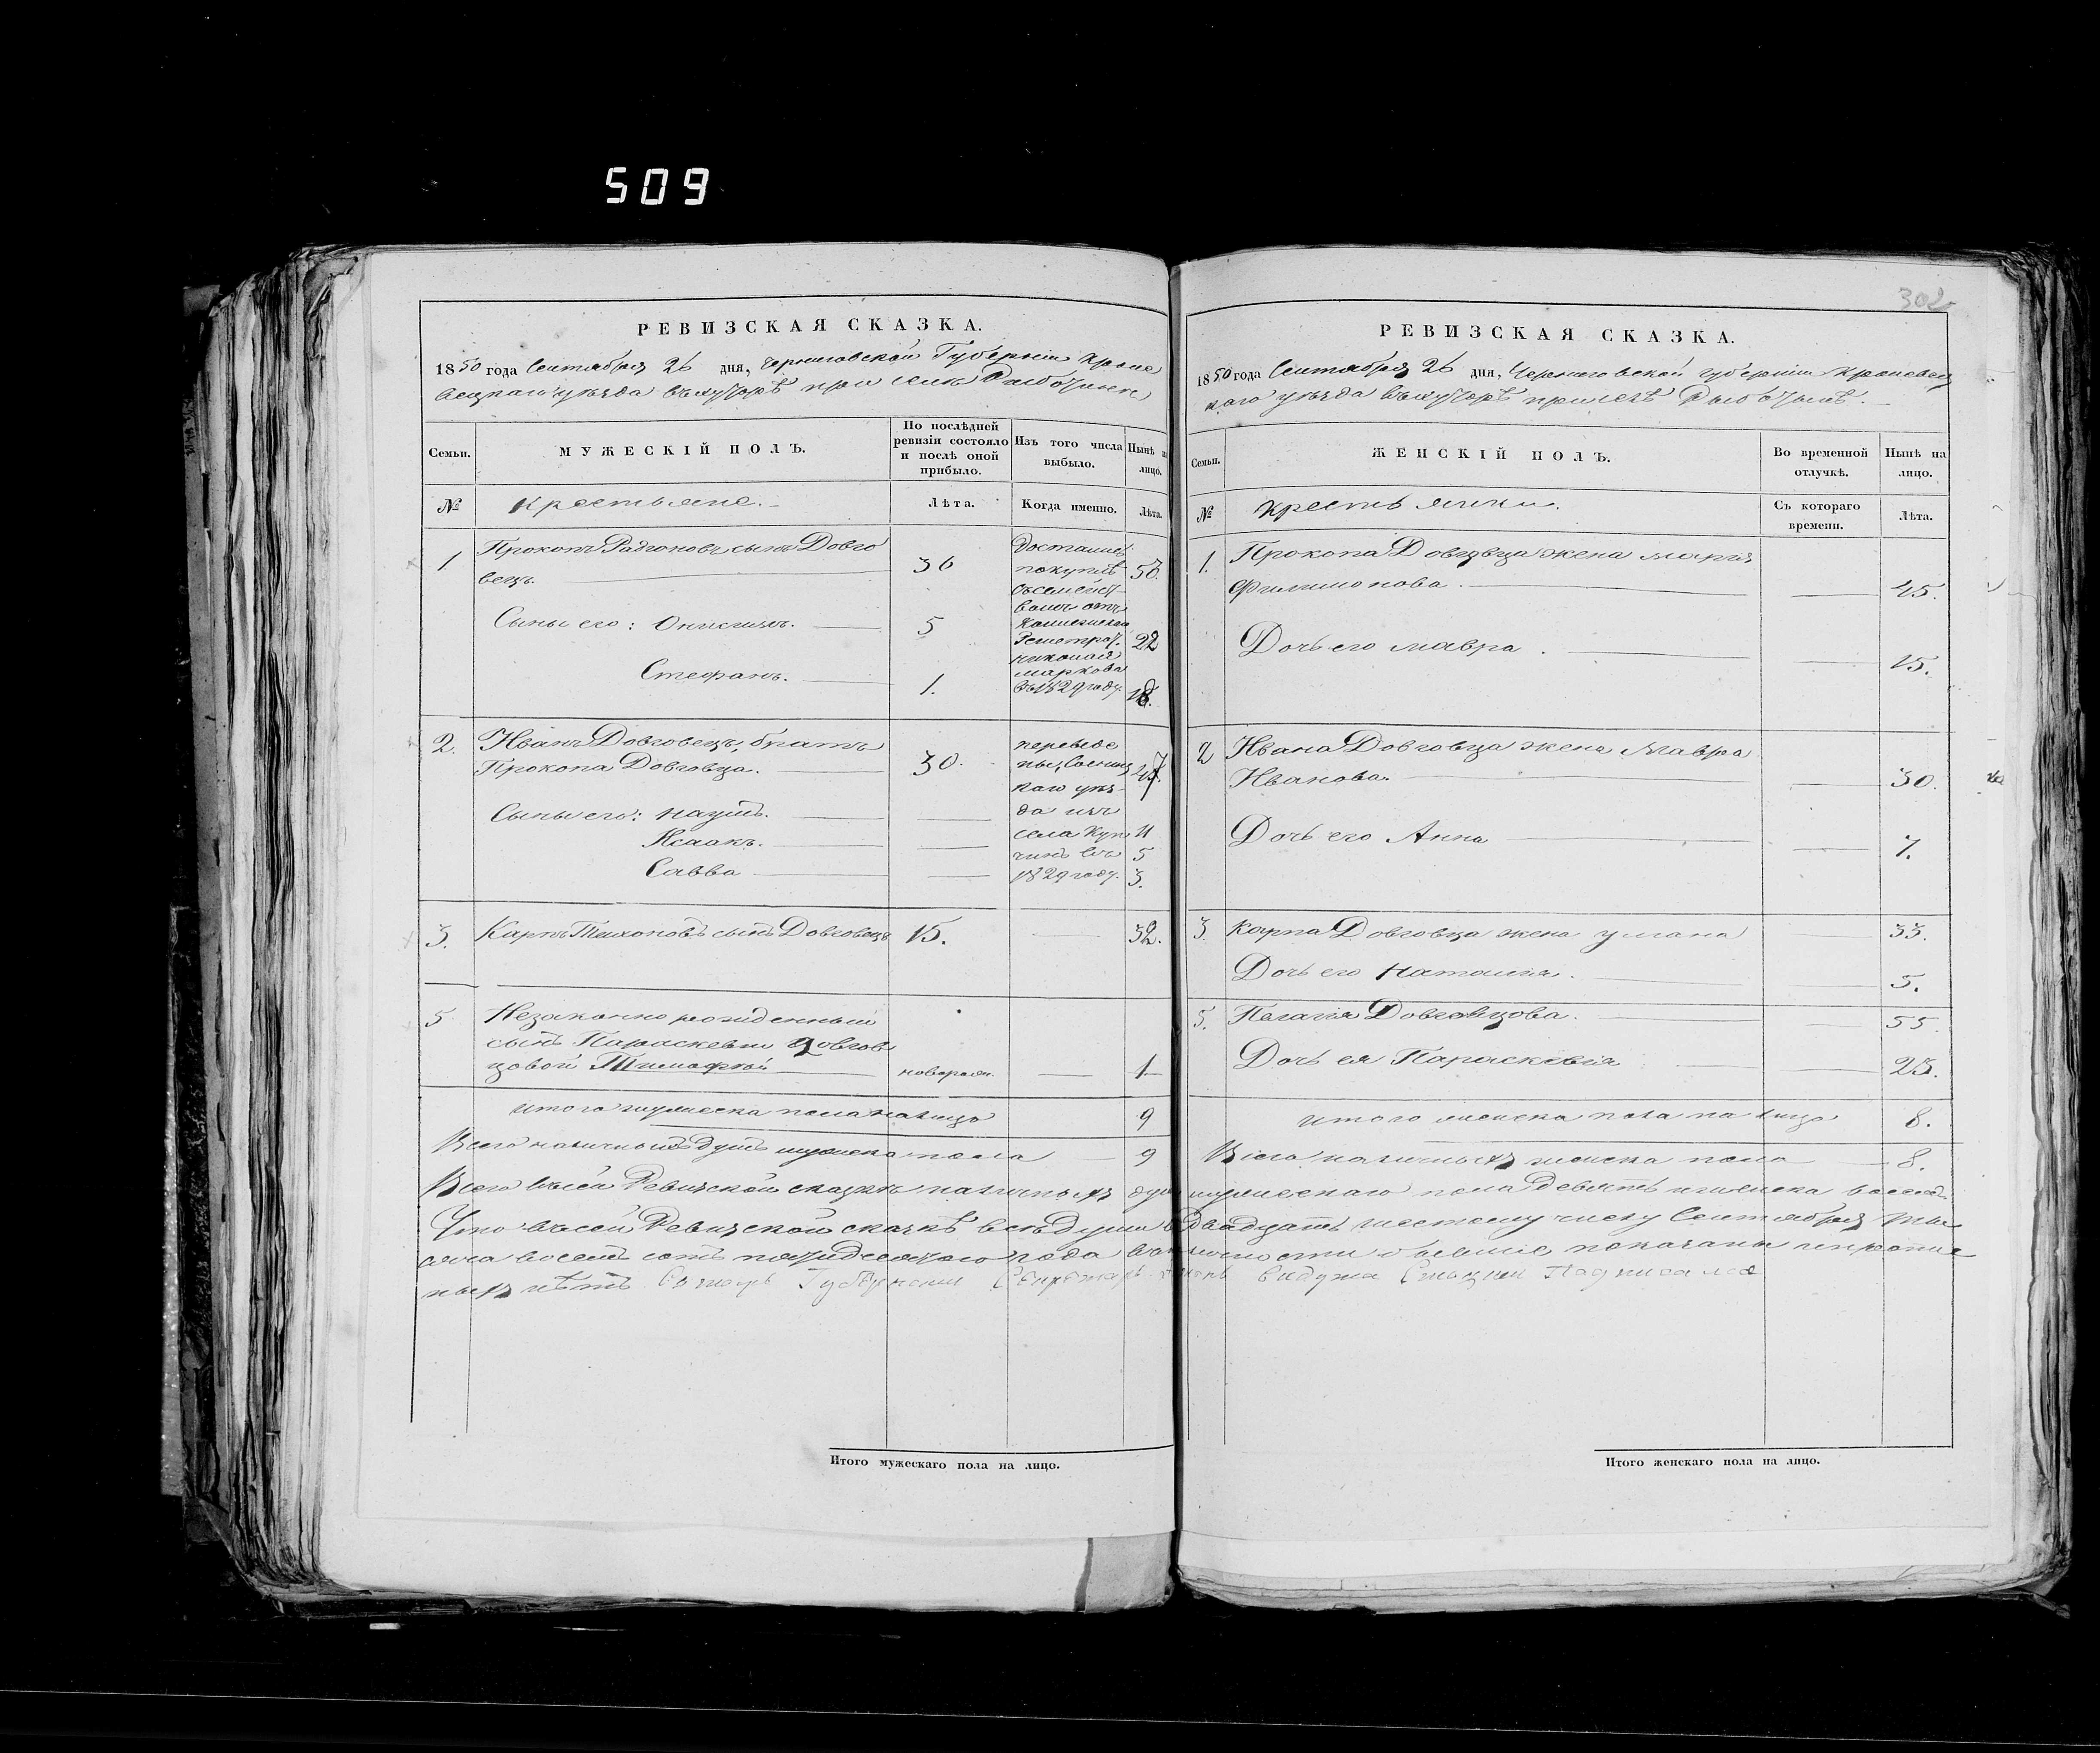 509
302
РЕВИЗСКАЯ СКАЗКА.
1850 года Сентября 26 дня, Черниговской Губерніи Кроле
вецкаго уѣзда въ хуторѣ при селѣ Рыботинѣ
Семьи.
МУЖЕСКІЙ ПОЛЪ.
По послѣдней
ревизіи состояло
и послѣ оной
прибыло.
Изъ того числа
выбыло.
Нынѣ н
лицо.
№
крестьяне.
Лѣта.
Когда именно.
Лѣта.
1
Прокопъ Радионовъ сынъ Довго
вецъ.
36
50.
Сыны его: Онисимъ.
5
22
Стефанъ.
1.
18.
покупкѣ
Николая
Маркова
въ 1829 году.
2.
Иванъ Довговецъ, братъ
Прокопа Довговца.
30.
47.
переведе
ны, Сосниц
каго уѣз-
да изъ
села Кут
чинъ въ
1829 году.
Сыны его: Наумъ.
11
Исаакъ.
5
Савва
3.
3.
Карпъ Тихоновъ сынъ Довговецъ
15.
32.
5
Незаконно рожденный
сынъ Параскевіи Довгов
цовой Тимофей
новорожд.
1
Итого мужеска пола на лицо
9
Всего наличныхъ душъ мужеска пола
9
РЕВИЗСКАЯ СКАЗКА.
1850 года Сентября 26 дня, Черниговской губерніи Кролевец
каго уѣзда въ хуторѣ при селѣ Рыботинѣ.
Семьи.
ЖЕНСКІЙ ПОЛЪ.
Во временной
отлучкѣ.
Нынѣ на
лицо.
№
крестьянки.
Съ котораго
времени.
Лѣта.
1.
Прокопа Довговца жена Марія
Филимонова.
45.
Дочь его Мавра.
15.
2
Ивана Довговца жена Мавра
Иванова.
30.
Дочь его Анна
7.
3.
Карпа Довговца жена Уляна
33.
Дочь его Наталия.
5.
5.
Пелагія Довговцова.
55.
Дочь ея Параскевія
23.
Итого женска пола на лицо
8.
Всего наличныхъ женска пола
8.
Всего въ сей Ревизской сказкѣ наличныхъ душъ мужескаго пола девять и женска восемь
Что въ сей Ревизской сказкѣ всѣ души къ двадцать шестому числу Сентября тыс
яча восемь сотъ пятидесятого года въ наличности бывшіе, показаны и прописн
ныхъ нѣтъ Губернскій Секретарь Подписался
Итого мужескаго пола на лицо.
Итого женскаго пола на лицо.